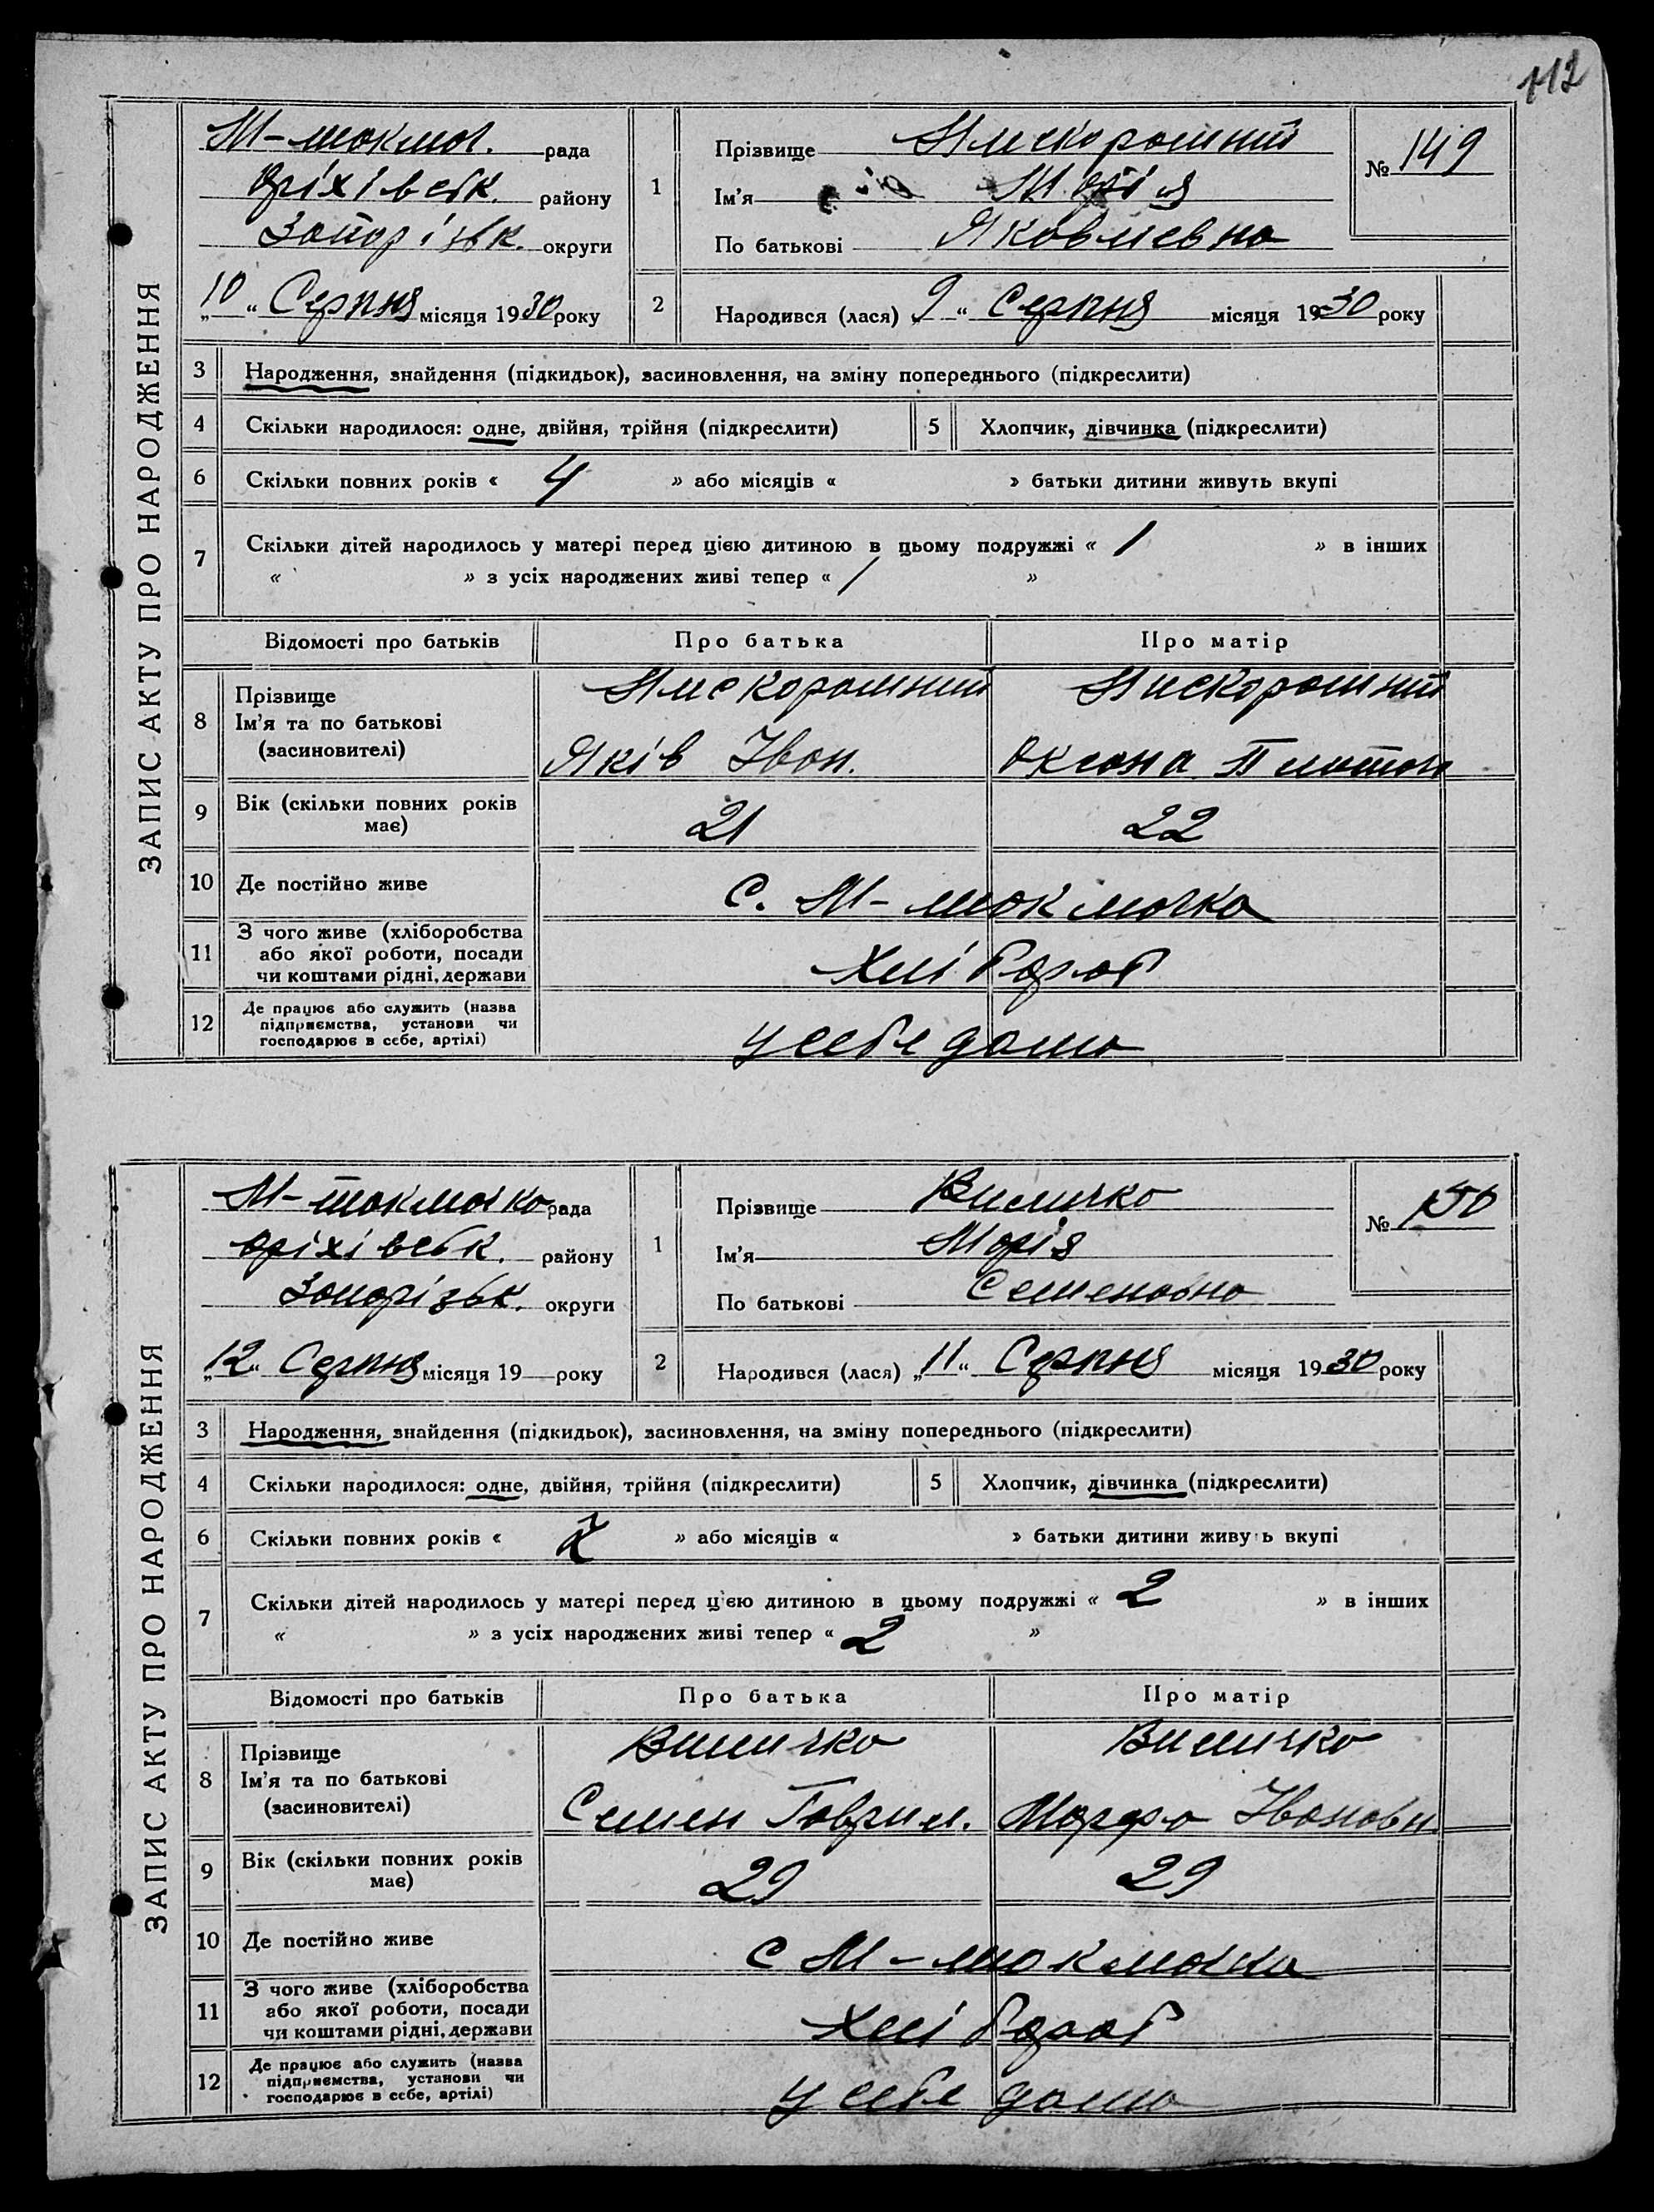 112
ЗАПИС АКТУ ПРО НАРОДЖЕННЯ
М-токмач. рада
Оріхівськ. району
Запорізьк. округи
„10“ Серпня місяця 1930 року
1
Прізвище
Ім'я Марія
По батькові Яковлевна
№ 149
2
Народився (лася) „9“ Серпня місяця 1930 року
3 Народження, знайдення (підкидьок), засиновлення, на зміну попереднього (підкреслити)
4 Скільки народилося: одне, двійня, трійня (підкреслити) 5 Хлопчик, дівчинка (підкреслити)
6 Скільки повних років « 4 » або місяців « » батьки дитини живуть вкупі
7 Скільки дітей народилось у матері перед цією дитиною в цьому подружжі « 1 » в інших
« » з усіх народжених живі тепер « 1 »
Відомості про батьків Про батька Про матір
8 Прізвище
Ім'я та по батькові
(засиновителі)
Яків Іван. Оксана
9 Вік (скільки повних років має) 21 22
10 Де постійно живе с. М-токмачка
11 З чого живе (хліборобства
або якої роботи, посади
чи коштами рідні, держави
Хлібороб
12 Де працює або служить (назва
підприємства, установи чи
господарює в себе, артілі)
у себе дома
ЗАПИС АКТУ ПРО НАРОДЖЕННЯ
М-токмачка рада
Оріхівськ. району
Запорізьк. округи
„12“ Серпня місяця 19 року
1
Прізвище Величко
Ім'я Марія
По батькові Семеновна
№ 150
2
Народився (лася) „11“ Серпня місяця 1930 року
3 Народження, знайдення (підкидьок), засиновлення, на зміну попереднього (підкреслити)
4 Скільки народилося: одне, двійня, трійня (підкреслити) 5 Хлопчик, дівчинка (підкреслити)
6 Скільки повних років « » або місяців « » батьки дитини живуть вкупі
7 Скільки дітей народилось у матері перед цією дитиною в цьому подружжі « 2 » в інших
« » з усіх народжених живі тепер « 2 »
Відомості про батьків Про батька Про матір
8 Прізвище
Ім'я та по батькові
(засиновителі)
Величко Величко
Семен Гаврил. Марфа Івановн.
9 Вік (скільки повних років має) 29 29
10 Де постійно живе с М-токмачка
11 З чого живе (хліборобства
або якої роботи, посади
чи коштами рідні, держави
Хлібороб
12 Де працює або служить (назва
підприємства, установи чи
господарює в себе, артілі)
у себе дома